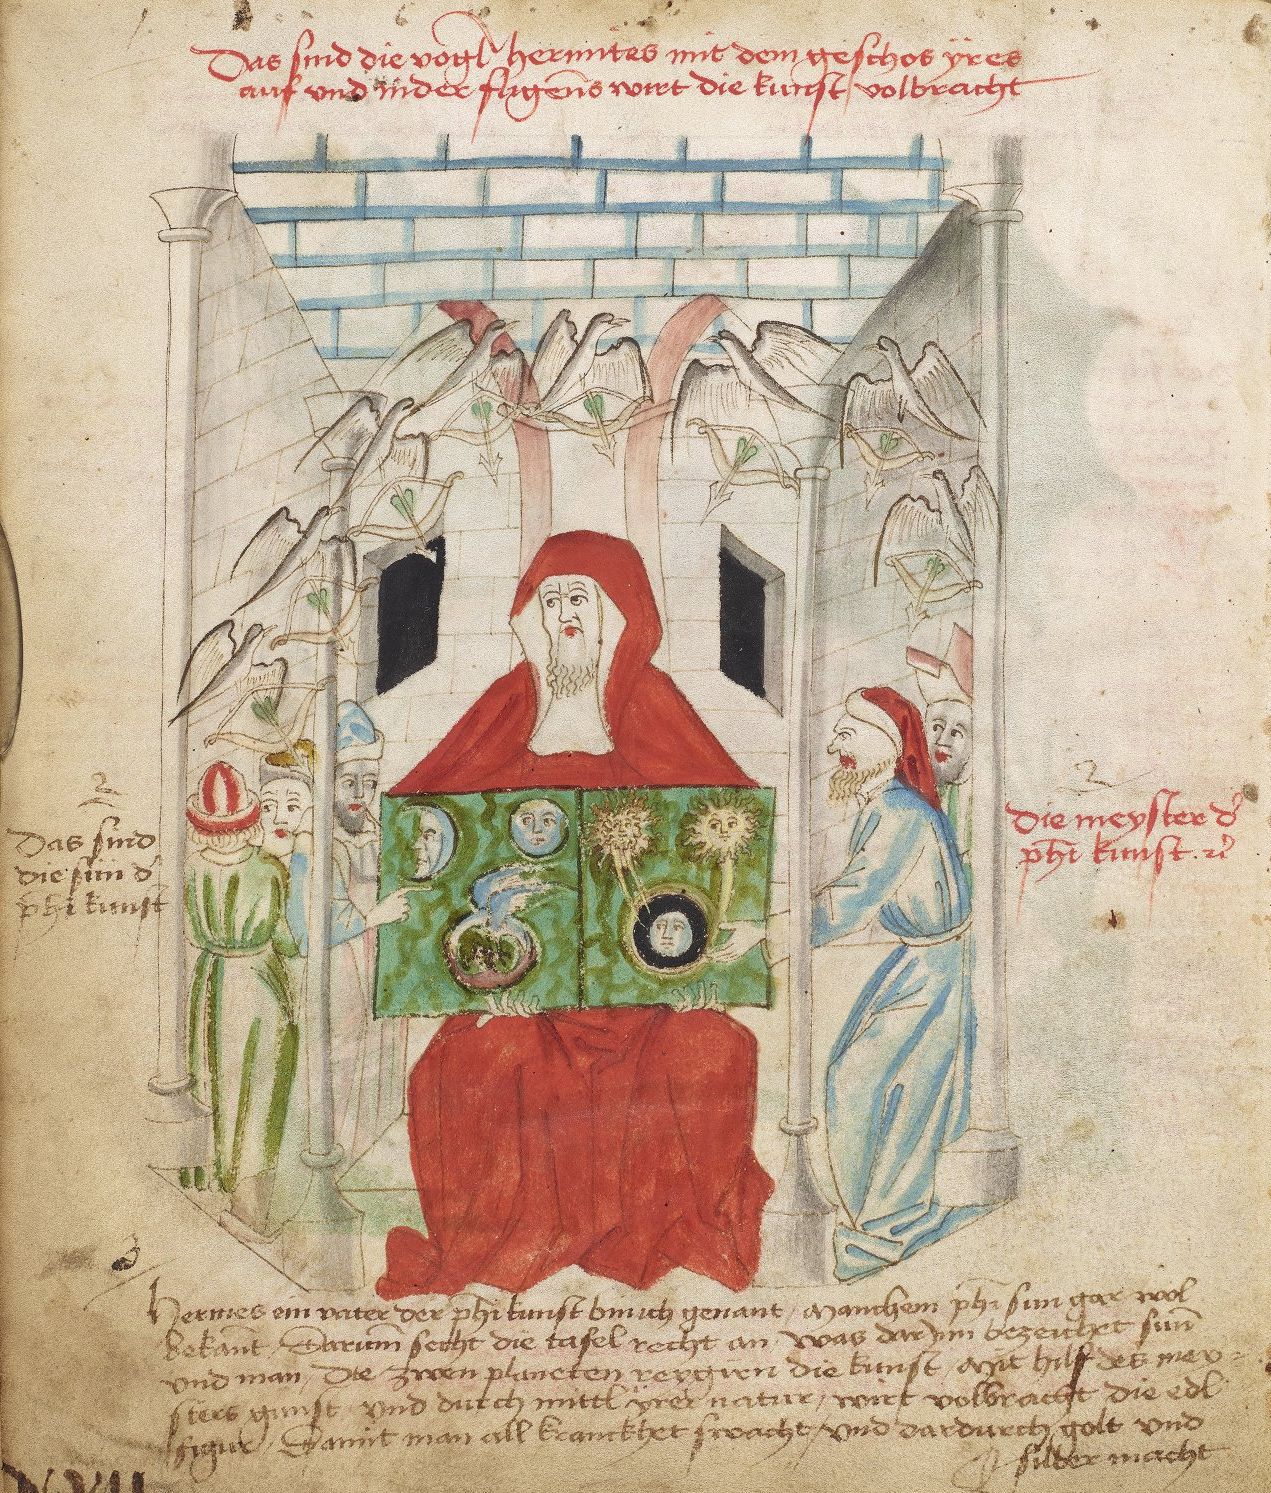 Das sind die vögl hermites mit dem geschos yres
auff vnd nider fligens wirt die kunst volbracht
2
Das sind
die sün d'
phi kunst
2
Die meyster d'
phi kunst
Hermes ein vater der phi kunst bin ich genant / Manchem phi sun gar wol
bekant / Darum secht die tafel recht an / was dar Inn bezeichet sunn
vnd man / Die zwen planeten regirn die kunst / Mit hilf des mey-
sters gunst / vnd durch mittl yrer natur / wirt volbracht die edl
figur / Damit man all kranckhet swacht / vnd dardurch golt vnd
silber macht